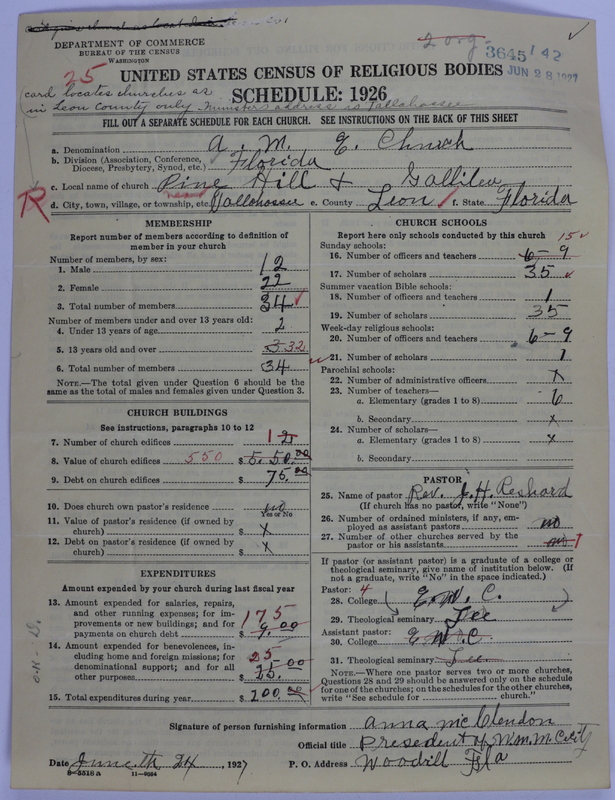 DEPARTMENT OF COMMERCE
BUREAU OF THE CENSUS
WASHINGTON
3645 142
JUN 28 1927
25
UNITED STATES CENSUS OF RELIGIOUS BODIES
card locates churches as
in Leon County only Minister's address is Tallahassee
SCHEDULE: 1926
FILL OUT A SEPARATE SCHEDULE FOR EACH CHURCH. SEE INSTRUCTIONS ON THE BACK OF THIS SHEET
a. Denomination A. M. E. Church
b. Division (Association, Conference, Diocese, Presbytery, Synod, etc.) Florida
c. Local name of church Pine Hill & Gallilew
R
d. City, town, village, or township, etc. near Tallahassee e. County Leon f. State Florida
MEMBERSHIP
Report number of members according to definition of member in your church
Number of members, by sex:
1. Male 12
2. Female 22
3. Total number of members 34
Number of members under and over 13 years old:
4. Under 13 years of age 2
5. 13 years old and over 3 32
6. Total number of members 34
NOTE.—The total given under Question 6 should be the same as the total of males and females given under Question 3.
CHURCH BUILDINGS
See instructions, paragraphs 10 to 12
7. Number of church edifices 1 2
8. Value of church edifices 550 $ 5.50.00
9. Debt on church edifices $ 75.00
10. Does church own pastor's residence? no
Yes or No
11. Value of pastor's residence (if owned by church) $ X
12. Debt on pastor's residence (if owned by church) $ X
EXPENDITURES
Amount expended by your church during last fiscal year
13. Amount expended for salaries, repairs, and other running expenses; for improvements or new buildings; and for payments on church debt $ 175 9.00
14. Amount expended for benevolences, including home and foreign missions; for denominational support; and for all other purposes $ 25 25.00
15. Total expenditures during year $ 200.00
CHURCH SCHOOLS
Report here only schools conducted by this church
Sunday schools: 15
16. Number of officers and teachers 6-9
17. Number of scholars 35
Summer vacation Bible schools:
18. Number of officers and teachers 1
19. Number of scholars 35
Week-day religious schools:
20. Number of officers and teachers 6-9
21. Number of scholars 1
Parochial schools:
22. Number of administrative officers X
23. Number of teachers—
a. Elementary (grades 1 to 8) 6
b. Secondary x
24. Number of scholars—
a. Elementary (grades 1 to 8) x
b. Secondary
PASTOR
25. Name of pastor Rev. J. H. Reshard
(If church has no pastor, write "None")
26. Number of ordained ministers, if any, employed as assistant pastors no
27. Number of other churches served by the pastor or his assistants no 1
If pastor (or assistant pastor) is a graduate of a college or theological seminary, give name of institution below. (If not a graduate, write "No" in the space indicated.)
Pastor: 4
28. College E. W. C.
29. Theological seminary Lee
Assistant pastor:
30. College E W C
31. Theological seminary Lee
NOTE.—Where one pastor serves two or more churches, Questions 28 and 29 should be answered only on the schedule for one of the churches; on the schedules for the other churches, write "See schedule for church."
Signature of person furnishing information Anna McClendon
Official title Presedent of Wm. M. Ceity
Date June th 24, 1927 P. O. Address Woodvill Fla
8-5518 a 11-9084